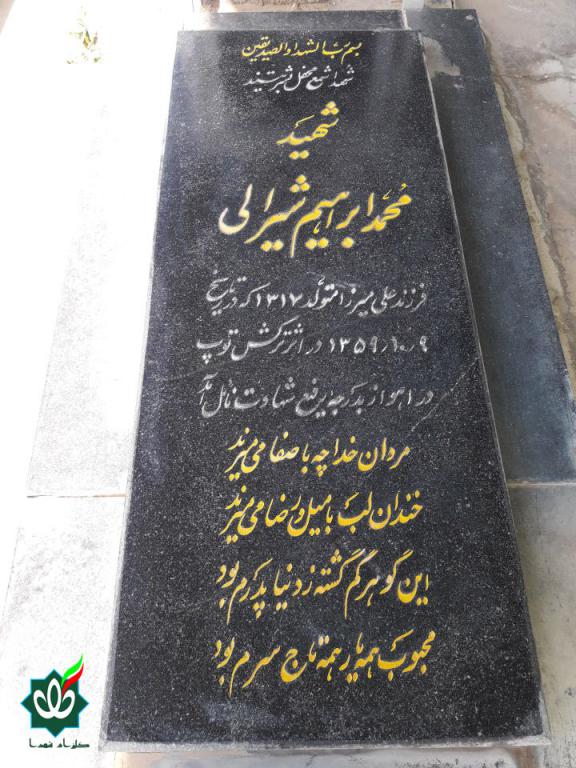 بسم رب الشهدا والصدیقین
شهدا شمع محفل بشریتند
شهید
محمد ابراهیم شیرالی
فرزند علی میرزا متولد ۱۳۱۷ که در تاریخ
۱۳۵۹/۱۰/۹ در اثر ترکش توپ
در اهواز بدرجه رفیع شهادت نائل آمد
مردان خدا چه با صفا می میرند
خندان لب با میل و رضا می میرند
این گوهر گم گشته ز دنیا پدرم بود
محبوب همه یار همه تاج سرم بود
گلزار شهدا